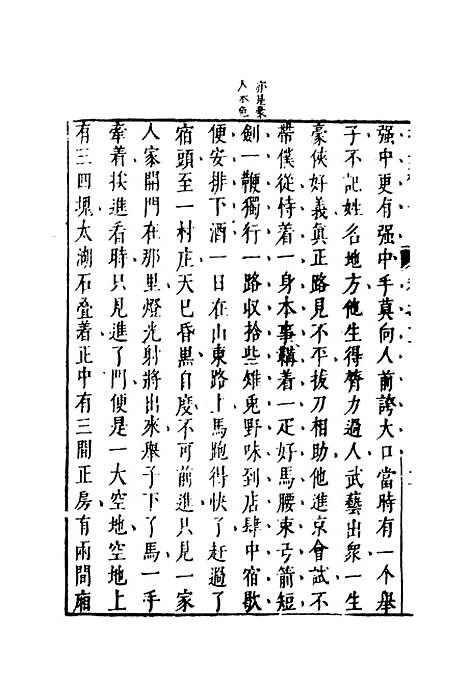 亦是豪
人本色
强中更有强中手莫向人前誇大口當時有一个舉
子不記姓名地方他生得膂力過人武藝出衆一生
豪俠好義眞正路見不平拔刀相助他進京會試不
帶僕從恃着一身本事鞲着一疋好馬腰束弓箭短
劍一鞭獨行一路收拾些雉兎野味到店肆中宿歇
便安排下酒一日在山東路上馬跑得快了赶過了
宿頭至一村庄天已昏黑自度不可前進只見一家
人家開門在那里燈光射將出來舉子下了馬一手
牽着挨進看時只見進了門便是一大空地空地上
有三四塊太湖石叠着正中有三間正房有兩間廂